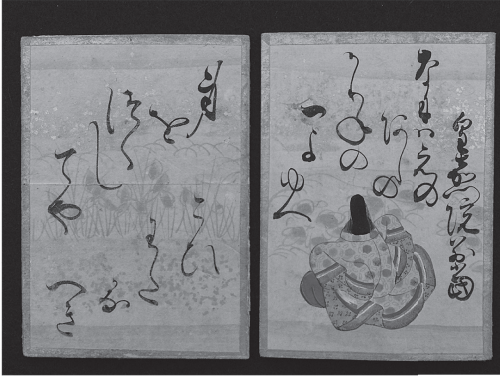 皇嘉門院別当
なには江の
あしの
かりねの
一よゆへ
身
を
つくし
てや
こひ
わた
る
へき